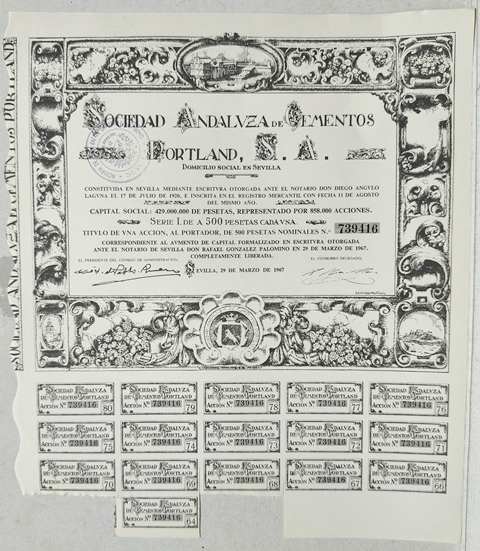 SOCIEDAD ANDALVZA DE CEMENTOS
PORTLAND, S. A.
DOMICILIO SOCIAL EN SEVILLA
CONSTITVIDA EN SEVILLA MEDIANTE ESCRITVRA OTORGADA ANTE EL NOTARIO DON DIEGO ANGVLO
LAGVNA EL 17 DE JVLIO DE 1920, E INSCRITA EN EL REGISTRO MERCANTIL CON FECHA 11 DE AGOSTO
DEL MISMO AÑO.
CAPITAL SOCIAL: 429.000.000 DE PESETAS, REPRESENTADO POR 858.000 ACCIONES.
SERIE I. DE A 500 PESETAS CADA VNA
TITVLO DE VNA ACCION, AL PORTADOR, DE 500 PESETAS NOMINALES N.º 739416
CORRESPONDIENTE AL AVMENTO DE CAPITAL FORMALIZADO EN ESCRITVRA OTORGADA
ANTE EL NOTARIO DE SEVILLA DON RAFAEL GONZALEZ PALOMINO EN 29 DE MARZO DE 1967.
COMPLETAMENTE LIBERADA.
EL PRESIDENTE DEL CONSEJO DE ADMINISTRACION,
EL CONSEJERO DELEGADO,
SEVILLA, 29 DE MARZO DE 1967
SOCIEDAD ANDALVZA
DE CEMENTOS PORTLAND
ACCIÓN Nº 739416 80
SOCIEDAD ANDALVZA
DE CEMENTOS PORTLAND
ACCIÓN Nº 739416 79
SOCIEDAD ANDALVZA
DE CEMENTOS PORTLAND
ACCIÓN Nº 739416 78
SOCIEDAD ANDALVZA
DE CEMENTOS PORTLAND
ACCIÓN Nº 739416 77
SOCIEDAD ANDALVZA
DE CEMENTOS PORTLAND
ACCIÓN Nº 739416 76
SOCIEDAD ANDALVZA
DE CEMENTOS PORTLAND
ACCIÓN Nº 739416 75
SOCIEDAD ANDALVZA
DE CEMENTOS PORTLAND
ACCIÓN Nº 739416 74
SOCIEDAD ANDALVZA
DE CEMENTOS PORTLAND
ACCIÓN Nº 739416 73
SOCIEDAD ANDALVZA
DE CEMENTOS PORTLAND
ACCIÓN Nº 739416 72
SOCIEDAD ANDALVZA
DE CEMENTOS PORTLAND
ACCIÓN Nº 739416 71
SOCIEDAD ANDALVZA
DE CEMENTOS PORTLAND
ACCIÓN Nº 739416 70
SOCIEDAD ANDALVZA
DE CEMENTOS PORTLAND
ACCIÓN Nº 739416 69
SOCIEDAD ANDALVZA
DE CEMENTOS PORTLAND
ACCIÓN Nº 739416 68
SOCIEDAD ANDALVZA
DE CEMENTOS PORTLAND
ACCIÓN Nº 739416 67
SOCIEDAD ANDALVZA
DE CEMENTOS PORTLAND
ACCIÓN Nº 739416 66
SOCIEDAD ANDALVZA
DE CEMENTOS PORTLAND
ACCIÓN Nº 739416 64